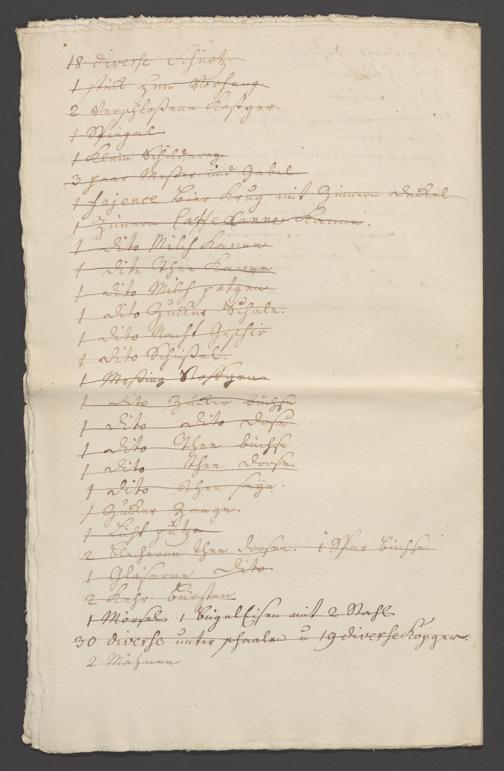 18 diverse Schürtz.
1 stück zum Vorhang
2 Verschloßene Kastger
1 Spiegel
1 Klein Schilderey
3 paar Meßer und Gabel
1 fajence Bier Krug mit Zinnern Deckel.
1 Zinnern Caffe Kanne.
1 dito Milch Kanne
1 dito Thee Kanne
1 dito Milch potgen
1 dito Zucker Schale.
1 dito Nacht Geschir
1 dito Schüßel.
1 Meßing
1 dito Zucker büchse
1 dito dito dose
1 dito Thee büchse
1 dito Thee doose.
1 dito Thee seye.
1 Zucker Zange.
1 Licht putze
2 blecherne Thee doosen. 1 Spar büchse
1 Gläserne dito.
2 Kehr bürsten
1 Mörsel 1 bügel Eisen mit 2 Stahl
30 diverse unter schaalen u 19 diverse Köpger
2